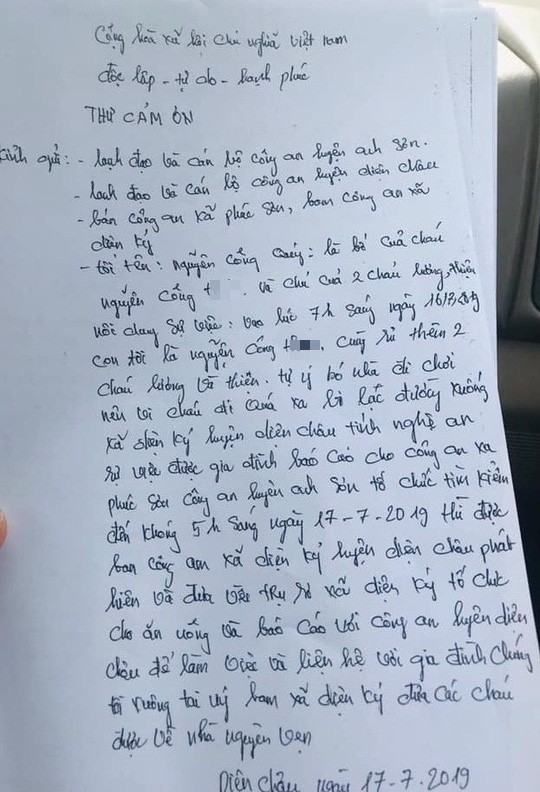 Cổng hoà xã hội chủ nghĩa việt nam
độc lập - tự do - hạnh phúc
THƯ CẢM ƠN
kính gửi: - lạnh đạo và cán bộ công an huyện anh sơn.
- lạnh đạo và cán bộ công an huyện diễn châu
- bán công an xã phúc sơn, bam công an xã
diễn kỷ
- tôi tên: nguyễn công : là bố của cháu
nguyễn công t . và chú của 2 cháu lương, thiện
nôi dung sự việc: vao lúc 7h sáng ngày 16/7/2019
con tôi là nguyễn công t , cùng rủ thêm 2
cháu lương và thiện. tự ý bỏ nhà đi chơi
nên vì cháu đi quá xa bị lạc đường xuống
xã diễn kỷ huyện diễn châu tỉnh nghệ an
sự việc được gia đình báo cáo cho công an xa
phúc sơn công an huyện anh sơn tổ chức tìm kiếm
đến khoảng 5h sáng ngày 17-7-2019 thì được
bam công am xã diện kỷ huyện diện châu phát
hiên và đưa vào trụ sở xã diễn kỷ tổ chức
cho ăn uống và báo cáo với công an huyên diên
châu để làm việc và liện hệ với gia đình chúng
tôi xuống tại uỷ bam xã diện kỷ đưa các cháu
được về nhà nguyên vẹn
Diên Châu ngày 17-7.2019